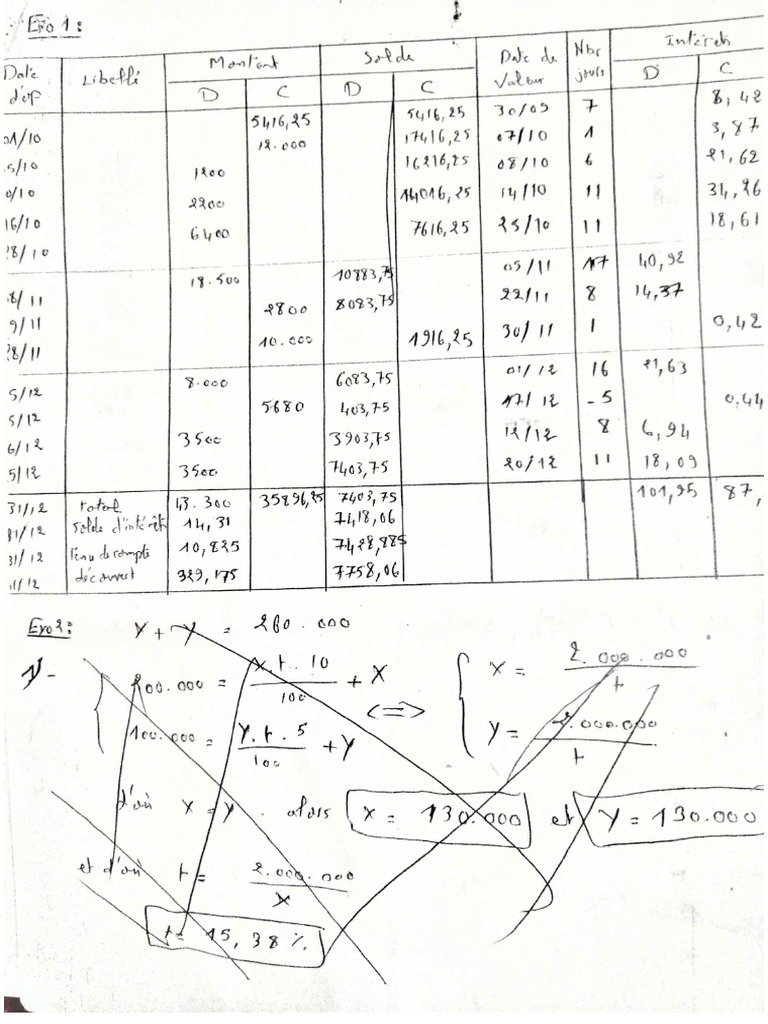 Exo 1:
Date d'op Libellé Montant Solde Date de Valeur Nbr jours Intérêts
D C D C D C
5416,25 5416,25 30/09 7 8,42
01/10 12.000 17416,25 07/10 1 3,87
5/10 1200 16216,25 08/10 6 21,62
0/10 2200 14016,25 14/10 11 34,26
16/10 6400 7616,25 25/10 11 18,61
28/10
18.500 10883,75 05/11 17 40,92
8/11 2800 8083,75 22/11 8 14,37
9/11 10.000 1916,25 30/11 1 0,42
28/11
8.000 6083,75 01/12 16 21,63
5/12 5680 403,75 17/12 -5 0,44
5/12 3500 3903,75 12/12 8 6,94
6/12 3500 7403,75 20/12 11 18,09
5/12
31/12 total 43.300 35896,25 7403,75 101,95 87,
31/12 solde d'intérêt 14,31 7418,06
31/12 Tenu de compte 10,825 7428,885
31/12 découvert 329,175 7758,06
Exo 2:
X + Y = 260.000
1/-
200.000 = X.t.10 / 100 + X <=> X = 2.000.000 / t
100.000 = Y.t.5 / 100 + Y Y = 2.000.000 / t
d'où X = Y alors X = 130.000 et Y = 130.000
et d'où t = 2.000.000 / X
t = 15,38 %